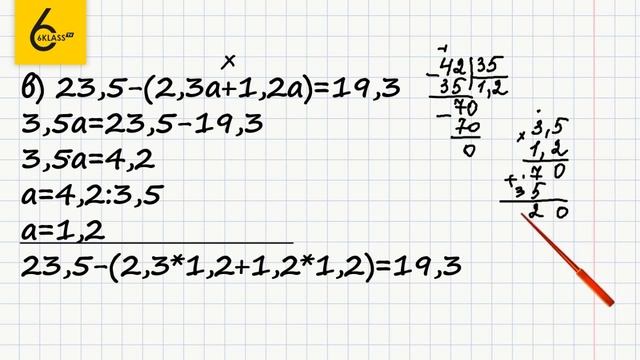 6KLASS TV
x
в) 23,5-(2,3а+1,2а)=19,3
3,5а=23,5-19,3
3,5а=4,2
а=4,2:3,5
а=1,2
23,5-(2,3*1,2+1,2*1,2)=19,3
- 42 | 35
35 | 1,2
- 70
70
0
x 3,5
1,2
+ 7 0
3 5
2 0